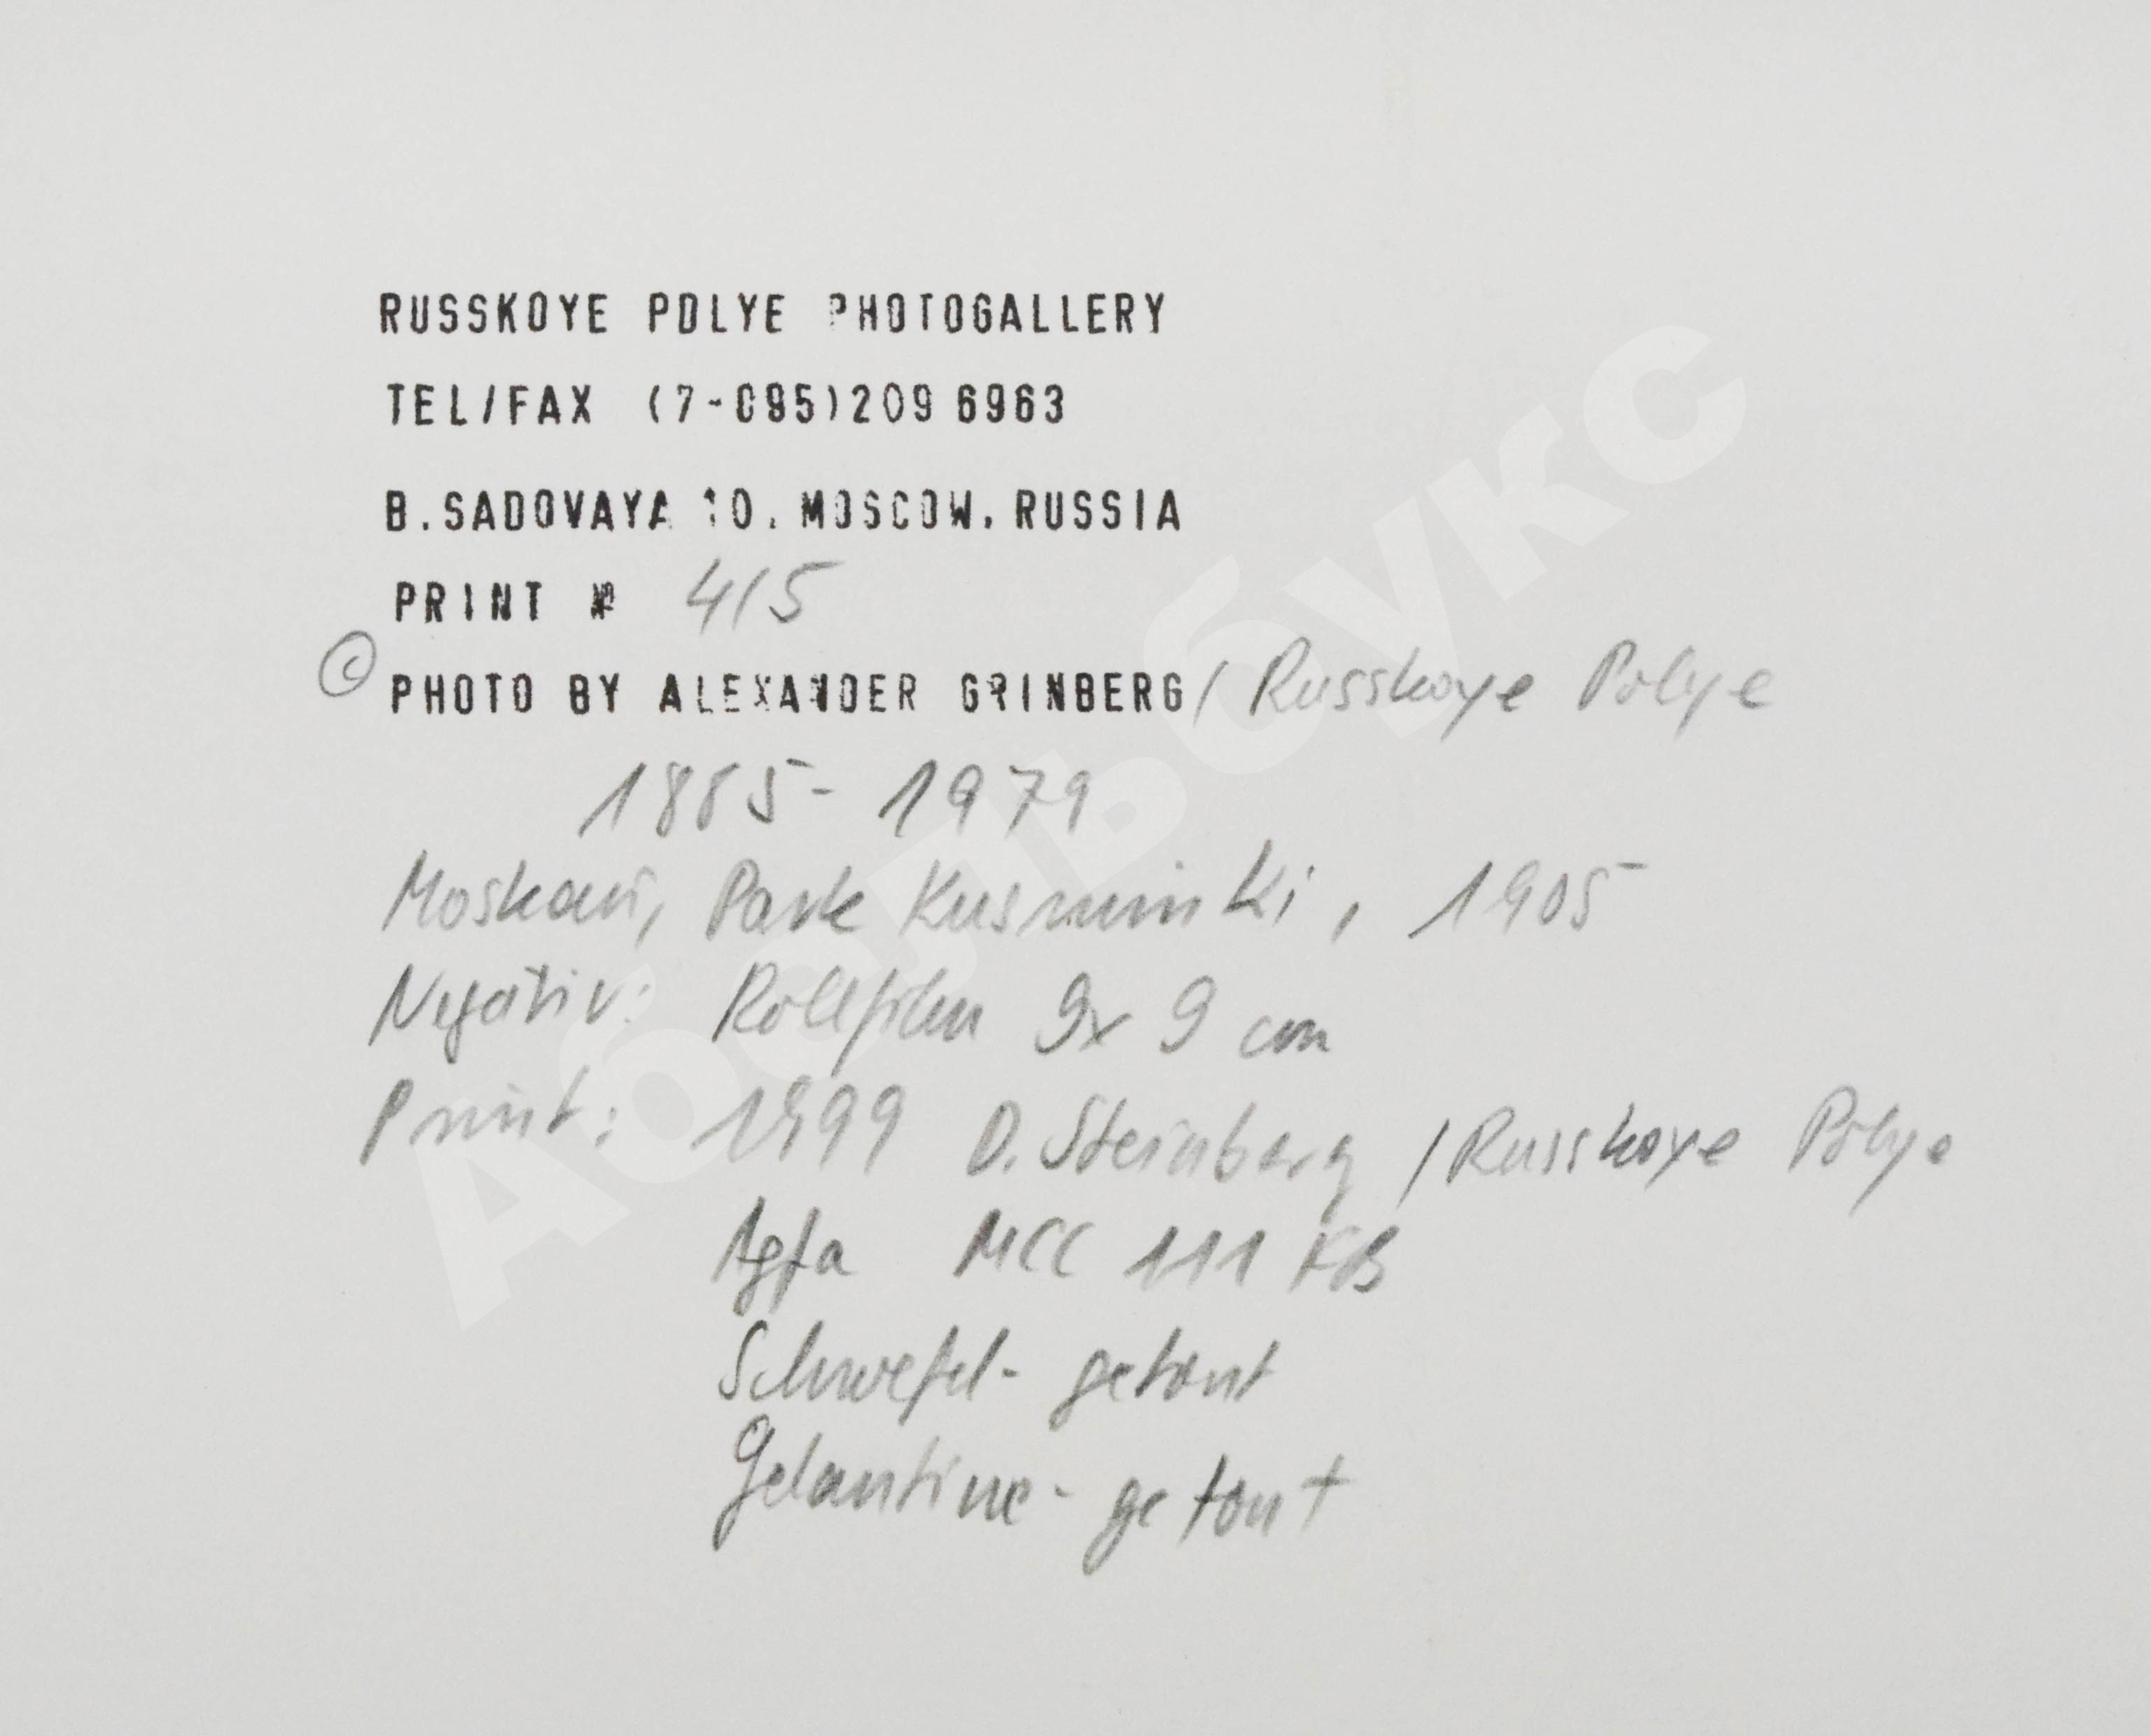 RUSSKOYE POLYE PHOTOGALLERY
TEL/FAX (7-095)209 6963
B.SADOVAYA 10, MOSCOW, RUSSIA
PRINT № 4/5
© PHOTO BY ALEXANDER GRINBERG / Russkoye Polye
1885 - 1979
Moskau, Park Kusminki, 1905
Negativ: Rollfilm 9x9 cm
Print: 1999 D. Steinberg / Russkoye Polye
Agfa MCC 111 FB
Schwefel-getont
Gelantine-getont
Абельбукс